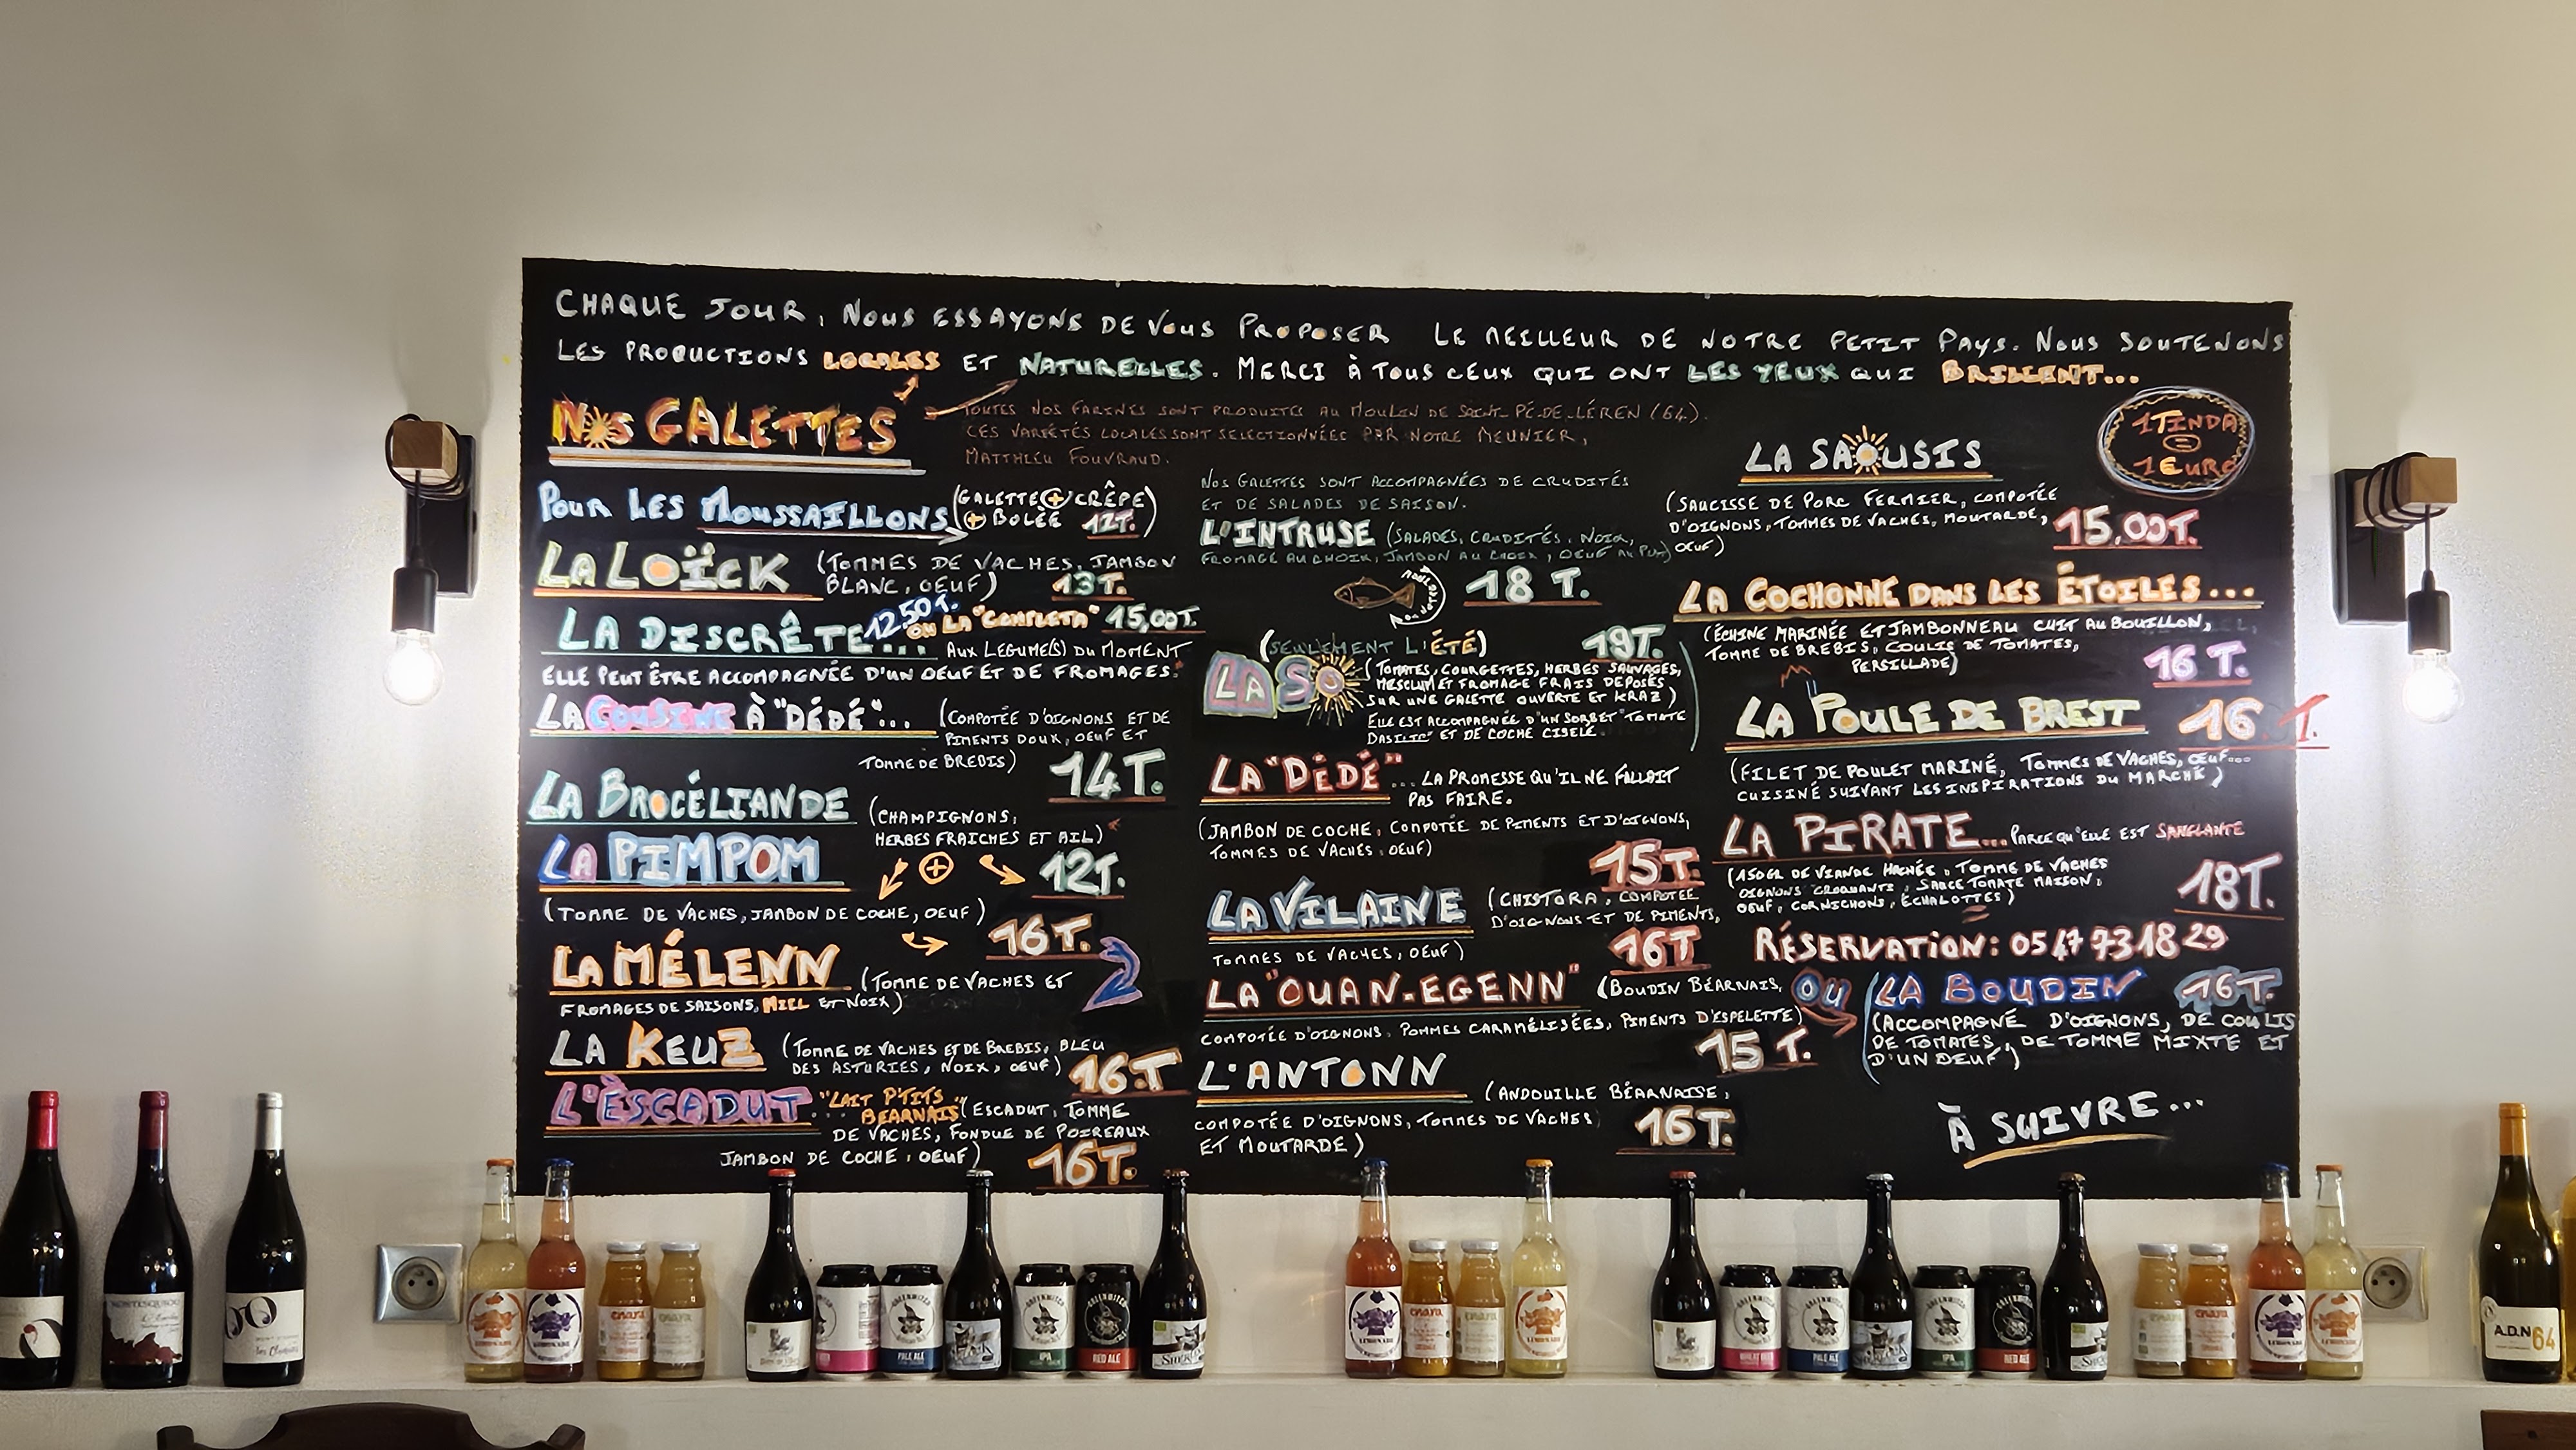 CHAQUE JOUR, NOUS ESSAYONS DE VOUS PROPOSER LE MEILLEUR DE NOTRE PETIT PAYS. NOUS SOUTENONS
LES PRODUCTIONS LOCALES ET NATURELLES. MERCI À TOUS CEUX QUI ONT LES YEUX QUI BRILLENT...
NOS GALETTES
TOUTES NOS FARINES SONT PRODUITES AU MOULIN DE SAINT-PÉ-DE-LÉREN (64).
CES VARIÉTÉS LOCALES SONT SELECTIONNÉES PAR NOTRE MEUNIER,
MATTHIEU FOUVRAUD.
POUR LES MOUSSAILLONS (GALETTE + CRÊPE
+ BOLÉE 12T.)
LA LOÏCK (TOMMES DE VACHES, JAMBON
BLANC, OEUF) 13T.
LA DISCRÊTE... 12.50T. OU LA "COMPLETA" 15,00T.
AUX LEGUME(S) DU MOMENT
ELLE PEUT ÊTRE ACCOMPAGNÉE D'UN OEUF ET DE FROMAGES.
LA COUSINE À "DÉDÉ"... (COMPOTÉE D'OIGNONS ET DE
PIMENTS DOUX, OEUF ET
TOMME DE BREBIS) 14T.
LA BROCÉLIANDE (CHAMPIGNONS,
HERBES FRAICHES ET AIL)
+ 12T.
LA PIMPOM
(TOMME DE VACHES, JAMBON DE COCHE, OEUF)
16T.
LA MÉLENN (TOMME DE VACHES ET
FROMAGES DE SAISONS, MIEL ET NOIX)
LA KEUZ (TOMME DE VACHES ET DE BREBIS, BLEU
DES ASTURIES, NOIX, OEUF) 16T
L'ÈSCADUT... "LAIT P'TITS
BEARNAIS" (ESCADUT, TOMME
DE VACHES, FONDUE DE POIREAUX
JAMBON DE COCHE, OEUF) 16T.
NOS GALETTES SONT ACCOMPAGNÉES DE CRUDITÉS
ET DE SALADES DE SAISON.
L'INTRUSE (SALADES, CRUDITÉS, NOIX,
FROMAGE AU CHOIX, JAMBON AU CHOIX, OEUF AU PLAT)
18 T.
(SEULEMENT L'ÉTÉ) 19T.
LA SO (TOMATES, COURGETTES, HERBES SAUVAGES,
MESCLUN ET FROMAGE FRAIS DÉPOSÉS
SUR UNE GALETTE OUVERTE ET KRAZ)
ELLE EST ACCOMPAGNÉE D'UN SORBET "TOMATE
BASILIC" ET DE COCHE CISELÉ.
LA "DÉDÉ"... LA PROMESSE QU'IL NE FALLAIT
PAS FAIRE.
(JAMBON DE COCHE, COMPOTÉE DE PIMENTS ET D'OIGNONS,
TOMMES DE VACHES, OEUF) 15T.
LA VILAINE (CHISTORA, COMPOTÉE
D'OIGNONS ET DE PIMENTS,
TOMMES DE VACHES, OEUF) 16T
LA "OUAN-EGENN" (BOUDIN BÉARNAIS,
COMPOTÉE D'OIGNONS, POMMES CARAMÉLISÉES, PIMENTS D'ESPELETTE)
15 T.
L'ANTONN (ANDOUILLE BÉARNAISE,
COMPOTÉE D'OIGNONS, TOMMES DE VACHES
ET MOUTARDE) 16T.
1 TINDA
=
1 EURO
LA SAOUSIS
(SAUCISSE DE PORC FERMIER, COMPOTÉE
D'OIGNONS, TOMMES DE VACHES, MOUTARDE,
OEUF) 15,00T.
LA COCHONNE DANS LES ÉTOILES...
(ÉCHINE MARINÉE ET JAMBONNEAU CUIT AU BOUILLON,
TOMME DE BREBIS, COULIS DE TOMATES,
PERSILLADE) 16 T.
LA POULE DE BREST 16 T.
(FILET DE POULET MARINÉ, TOMMES DE VACHES, OEUF...
CUISINÉ SUIVANT LES INSPIRATIONS DU MARCHÉ)
LA PIRATE... PARCE QU'ELLE EST SANGLANTE
(150GR DE VIANDE HACHÉE, TOMME DE VACHES
OIGNONS CROQUANTS, SAUCE TOMATE MAISON,
OEUF, CORNICHONS, ÉCHALOTTES) 18T.
RÉSERVATION: 05 47 73 18 29
OU LA BOUDIN 16T.
(ACCOMPAGNÉ D'OIGNONS, DE COULIS
DE TOMATES, DE TOMME MIXTE ET
D'UN OEUF)
À SUIVRE...
PALE ALE
IPA
RED ALE
PALE ALE
IPA
RED ALE
A.D.N 64